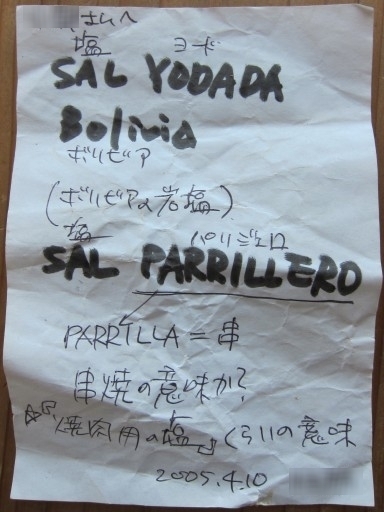 さんへ
塩 ヨード
SAL YODADA
Bolivia
ボリビア
(ボリビアの岩塩)
塩 パリジェロ
SAL PARRILLERO
PARRILLA = 串
串焼の意味か?
☆「焼肉用の塩」くらいの意味
2005.4.10